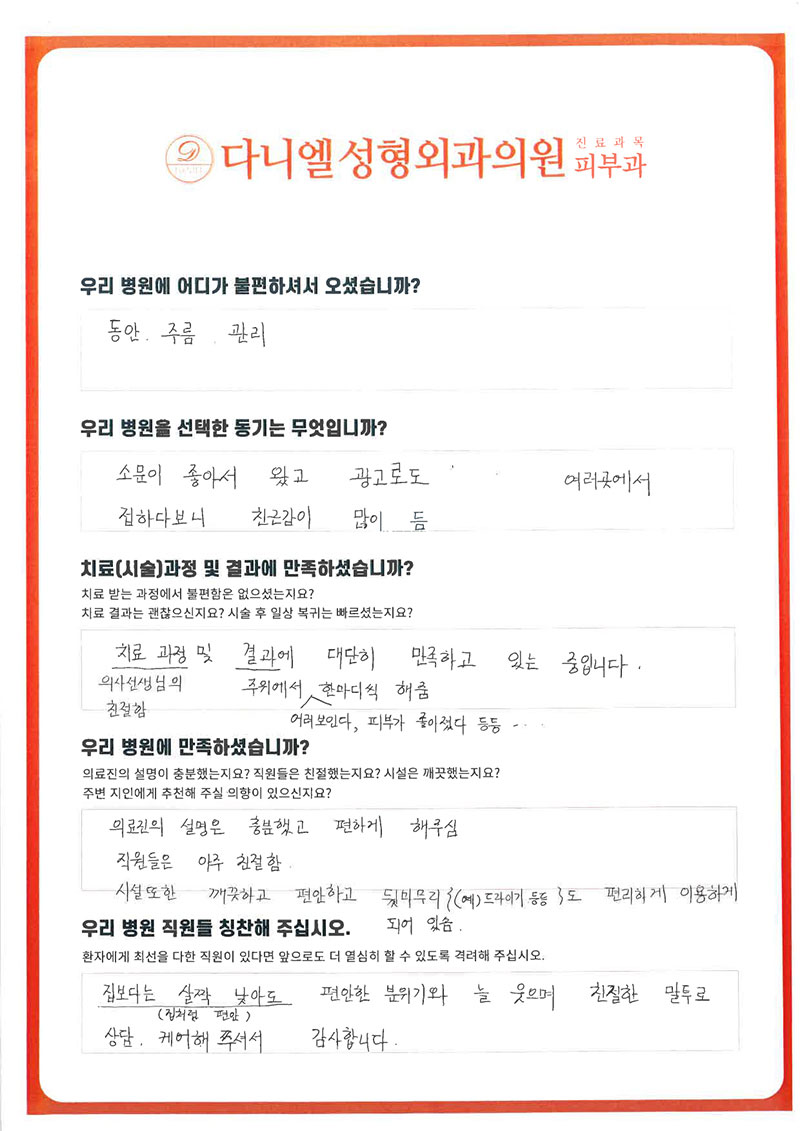 다니엘성형외과의원 진료과목 피부과
우리 병원에 어디가 불편하셔서 오셨습니까?
동안. 주름. 관리
우리 병원을 선택한 동기는 무엇입니까?
소문이 좋아서 왔고 광고로도 여러곳에서
접하다보니 친근감이 많이 듬
치료(시술)과정 및 결과에 만족하셨습니까?
치료 받는 과정에서 불편함은 없으셨는지요?
치료 결과는 괜찮으신지요? 시술 후 일상 복귀는 빠르셨는지요?
치료 과정 및 결과에 대단히 만족하고 있는 중입니다.
의사선생님의 주위에서 한마디씩 해줌
친절함
어려보인다, 피부가 좋아졌다 등등 ...
우리 병원에 만족하셨습니까?
의료진의 설명이 충분했는지요? 직원들은 친절했는지요? 시설은 깨끗했는지요?
주변 지인에게 추천해 주실 의향이 있으신지요?
의료진의 설명은 충분했고 편하게 해주심
직원들은 아주 친절함.
시설또한 깨끗하고 편안하고 뒷마무리{(예)드라이기 등등}도 편리하게 이용하게
되어 있슴.
우리 병원 직원들 칭찬해 주십시오.
환자에게 최선을 다한 직원이 있다면 앞으로도 더 열심히 할 수 있도록 격려해 주십시오.
집보다는 살짝 낮아도 편안한 분위기와 늘 웃으며 친절한 말투로
(집처럼 편안)
상담. 케어해 주셔서 감사합니다.